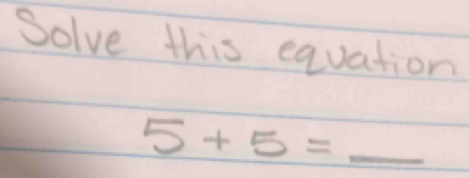 Solve this equation
5 + 5 = __